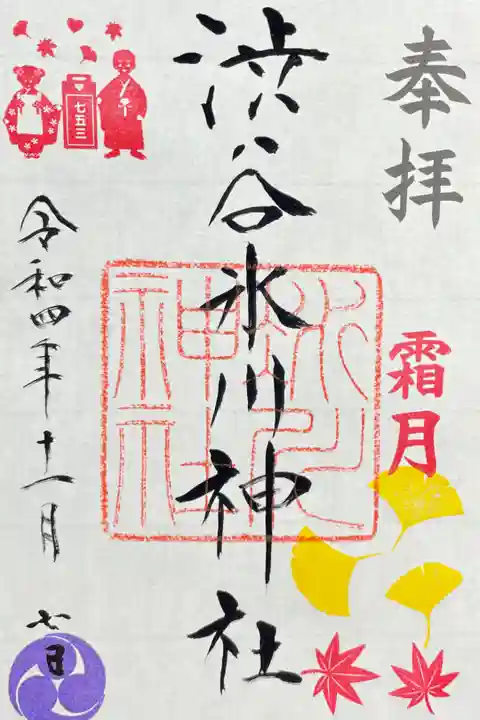 奉拝
霜月
渋谷氷川神社
氷川神社
七五三
令和四年十一月
七日